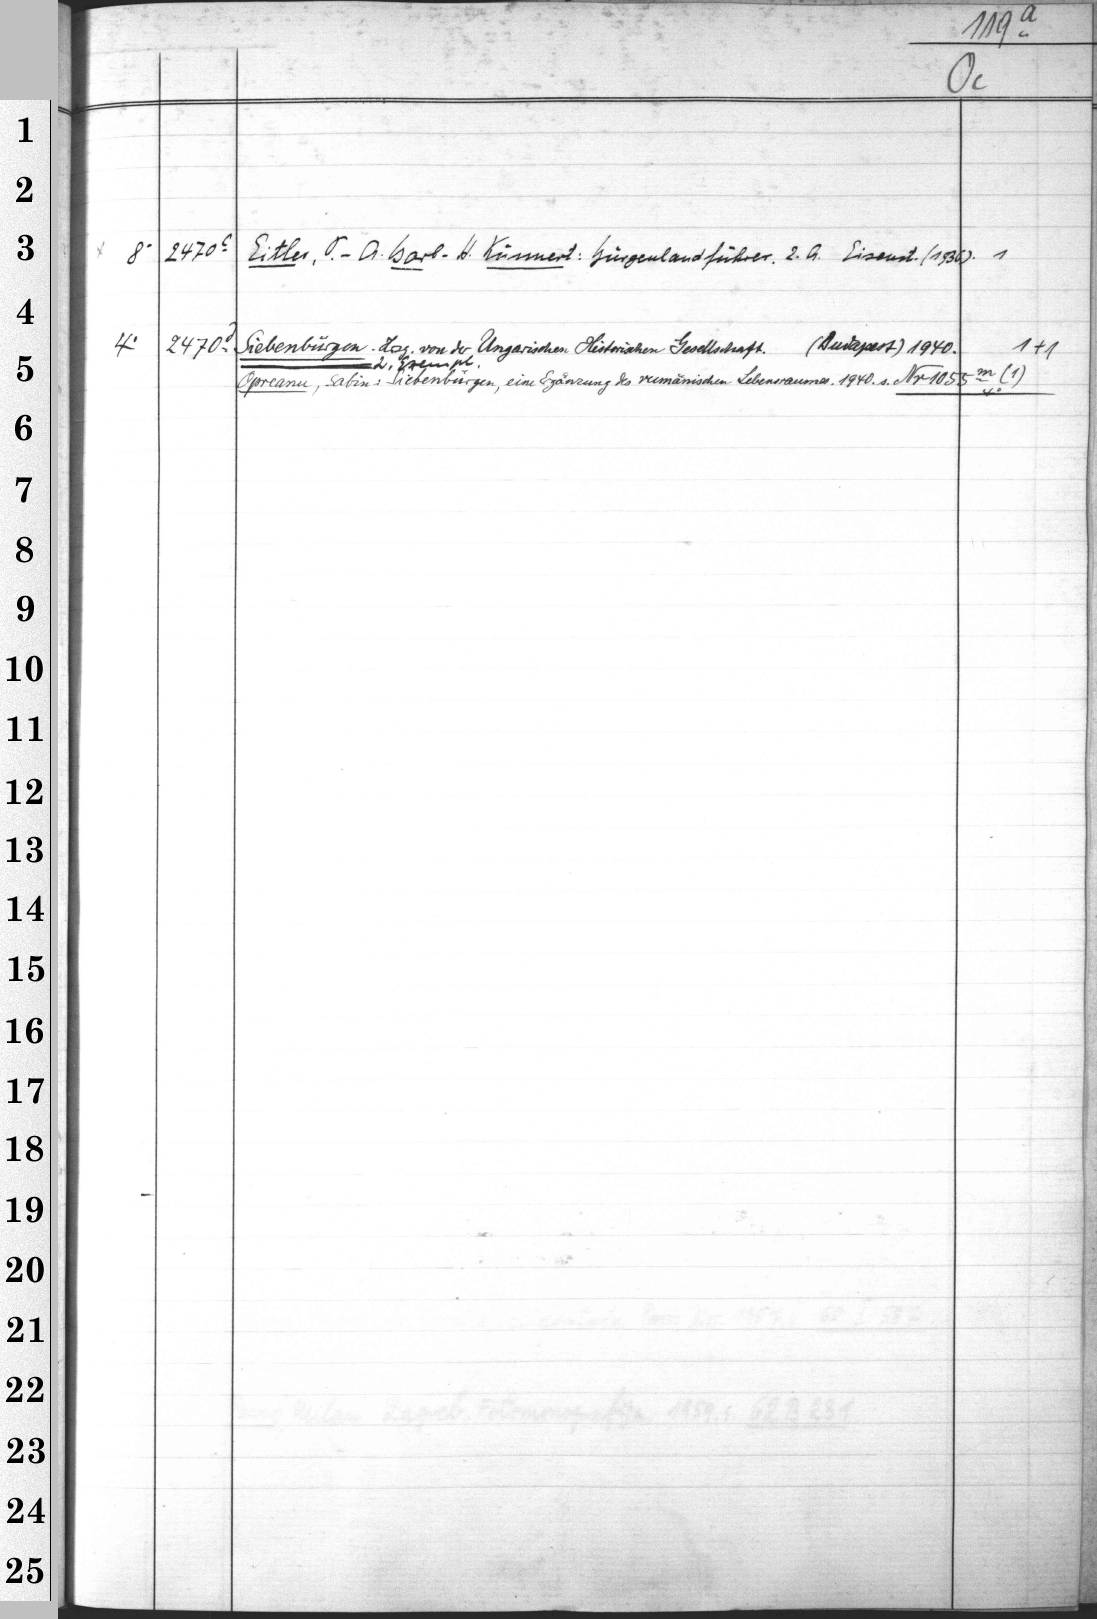 119a
Oc
1
2
3 8° 2470c Eitler, P. - A. Barb - H. Kunnert: Burgenlandführer. 2. A. Eisenst. (1936). 1
4
4° 2470d Siebenbürgen. Hsg. von der Ungarischen Historischen Gesellschaft. (Budapest) 1940. 1+1
5 2. Exempl.
Opreanu, Sabin: Siebenbürgen, eine Ergänzung des rumänischen Lebensraumes. 1940. s. Nr 1055m 4° (1)
6
7
8
9
10
11
12
13
14
15
16
17
18
19
20
21
22
23
24
25